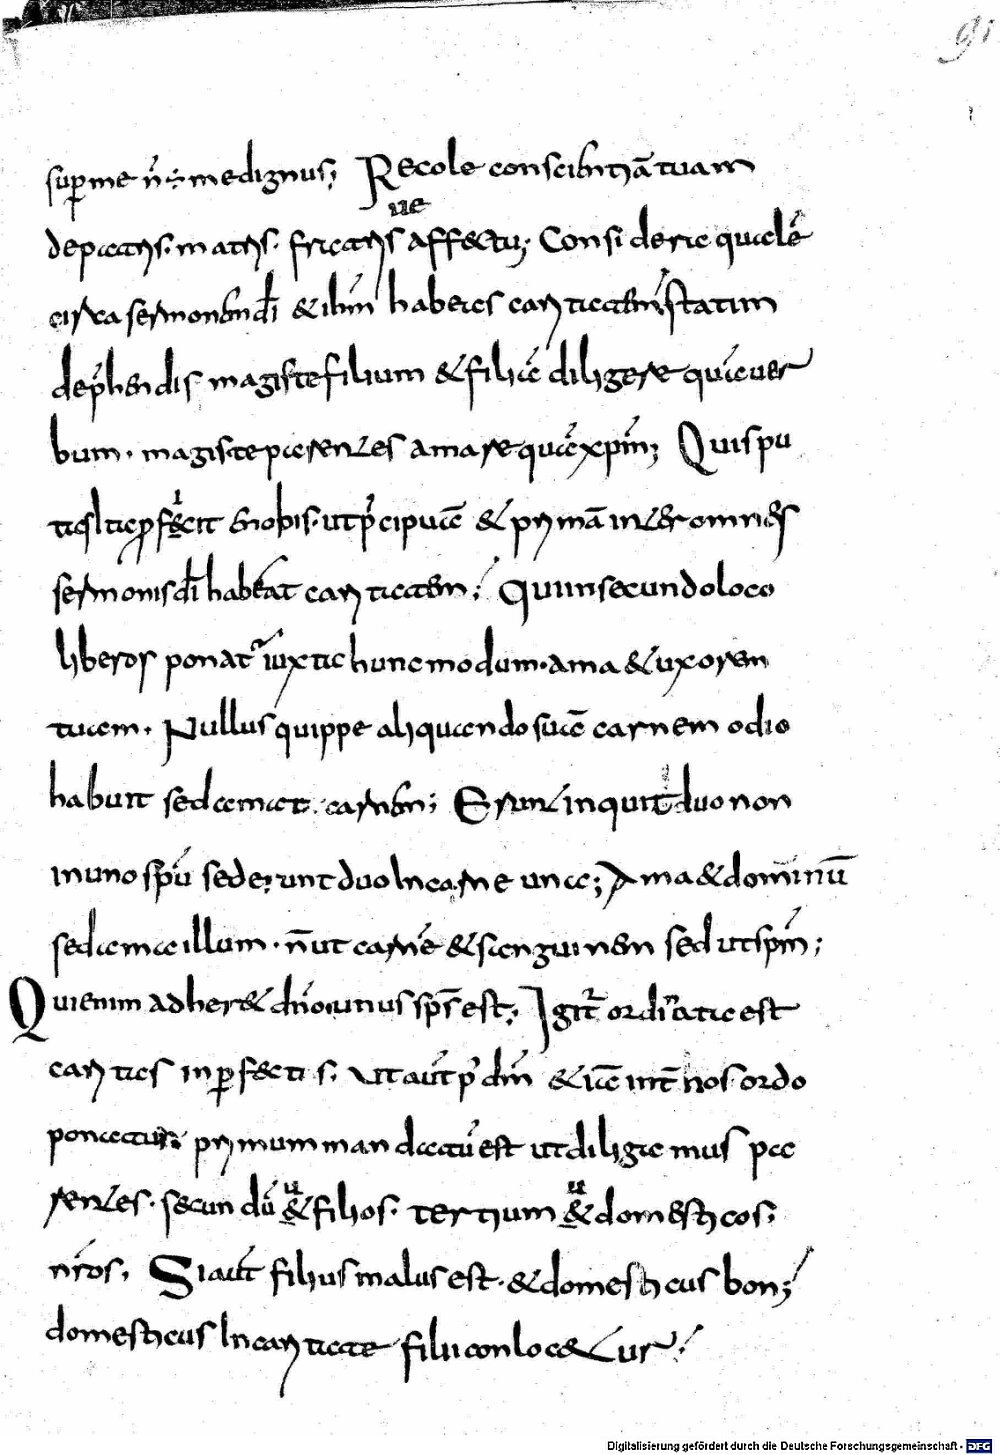 91
sup me n̄ ÷ me dignus; Recole conscientiā tuam
de patris · matris · fratris ue affectu; Considera qualē
circa sermonem dī & ihm̄ habeas caritatem; statim
deprehendis magis te filium & filiā diligere quā uer
bum · magis te parentes amare quā xp̄m; Quis pu
tas ita profecit e nobis · ut p̄cipuā & primā inter omnes
sermonis dī habeat caritatem; Qui in secundo loco
liberos ponat iuxta hunc modum · ama & uxorem
tuam · Nullus quippe aliquando suā carnem odio
habuit sed amat · carnem; Erunt inquit duo non
in uno sp̄u sed erunt duo In carne una; Ama & dominū
sed ama illum · n̄ ut carnē & sanguinem sed ut sp̄m;
Qui enim adher& dn̄o unus sp̄s est; Igit̄ ordinata est
caritas in perfectis · Ut aut̄ p̄ dm̄ & iā int̄ nos ordo
ponatur; primum mandatū est ut diligamus pa
rentes · secundū u & filios · tertium u & domesticos
nr̄os · Si aut̄ filius malus est · & domesticus bon;
domesticus In caritate filii conloc&ur;
Digitalisierung gefördert durch die Deutsche Forschungsgemeinschaft - DFG